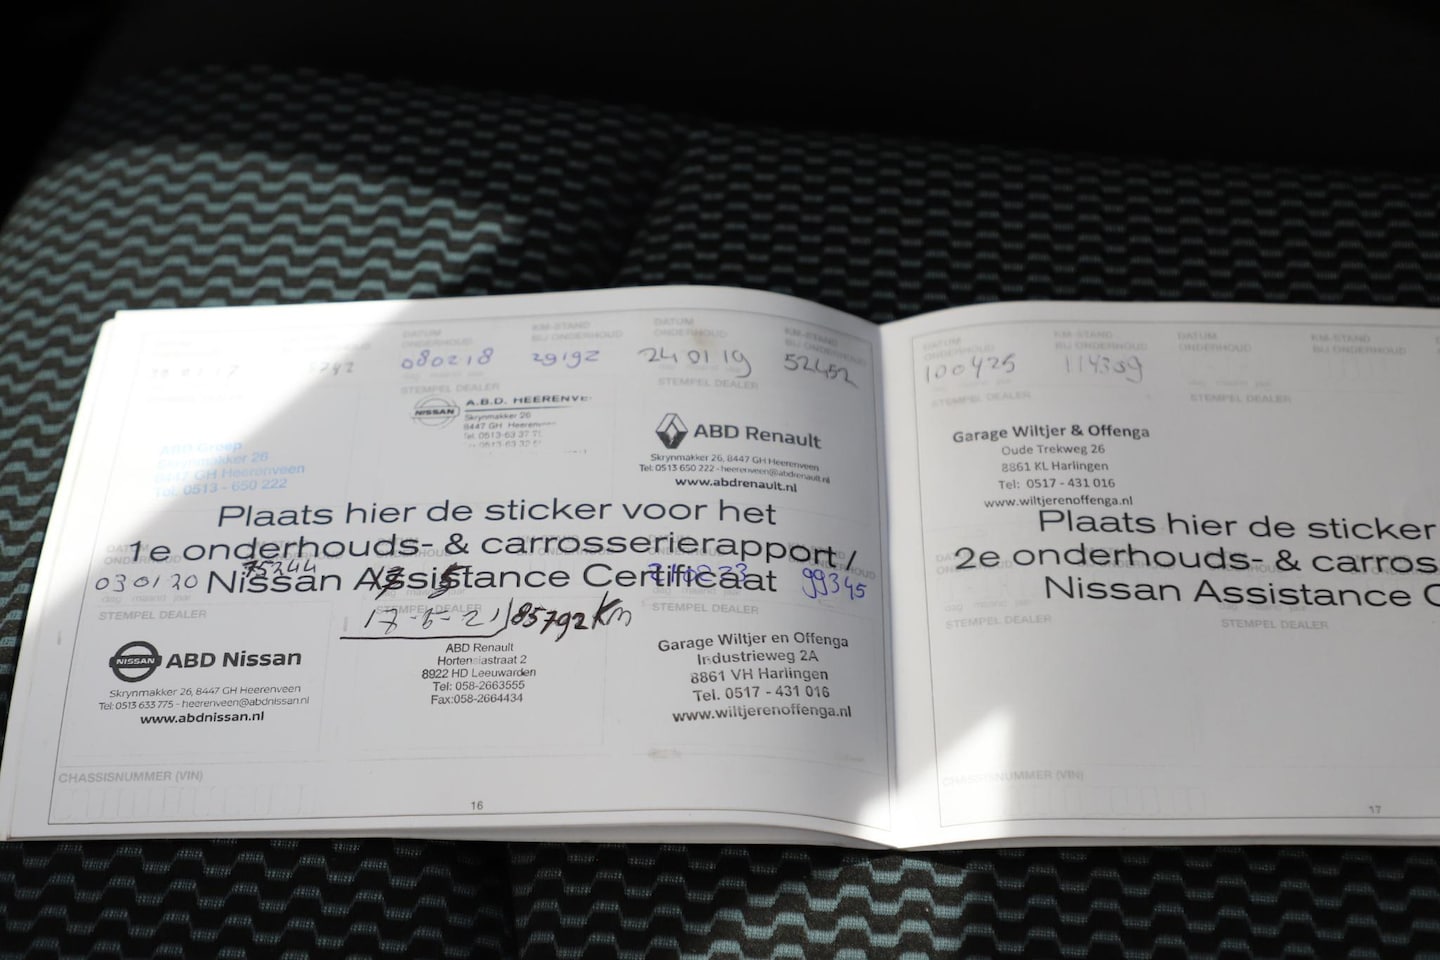 DATUM ONDERHOUD
KM-STAND BIJ ONDERHOUD
DATUM ONDERHOUD
KM-STAND BIJ ONDERHOUD
080218
29192
24 01 19
52452
STEMPEL DEALER
STEMPEL DEALER
ABD Groep
Skrynmakker 26
8447 GH Heerenveen
Tel. 0513 - 650 222
NISSAN
A.B.D. HEERENVE
Skrynmakker 26
8447 GH Heerenveen
ABD Renault
Skrynmakker 26, 8447 GH Heerenveen
Tel: 0513 650 222 - heerenveen@abdrenault.nl
www.abdrenault.nl
Plaats hier de sticker voor het
1e onderhouds- & carrosserierapport /
Nissan Assistance Certificaat
03 01 20
75244
99345
17-5-21
85792 Km
STEMPEL DEALER
STEMPEL DEALER
STEMPEL DEALER
NISSAN
ABD Nissan
Skrynmakker 26, 8447 GH Heerenveen
Tel: 0513 633 775 - heerenveen@abdnissan.nl
www.abdnissan.nl
ABD Renault
Hortensiastraat 2
8922 HD Leeuwarden
Tel: 058-2663555
Fax:058-2664434
Garage Wiltjer en Offenga
Industrieweg 2A
8861 VH Harlingen
Tel. 0517 - 431 016
www.wiltjerenoffenga.nl
CHASSISNUMMER (VIN)
16
DATUM ONDERHOUD
KM-STAND BIJ ONDERHOUD
DATUM ONDERHOUD
KM-STAND BIJ ONDERHOUD
100425
114389
STEMPEL DEALER
STEMPEL DEALER
Garage Wiltjer & Offenga
Oude Trekweg 26
8861 KL Harlingen
Tel: 0517 - 431 016
www.wiltjerenoffenga.nl
Plaats hier de sticker
2e onderhouds- & carros
Nissan Assistance C
STEMPEL DEALER
STEMPEL DEALER
CHASSISNUMMER (VIN)
17